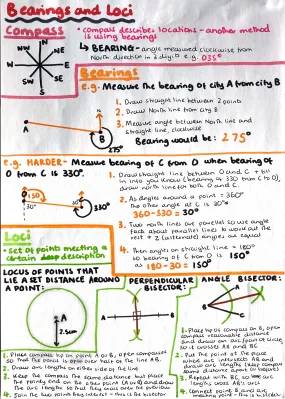 Bearings and Loci
Compass
• compass describes locations - another method
is using bearings
↳ BEARING - angle measured clockwise from
North direction in 3 digits e.g. 035°
N
NW
NE
W
E
SW
SE
S
Bearings
e.g. Measure the bearing of city A from city B
1. Draw straight line between 2 points
2. Draw North line from city B
3. Measure angle between North line and
straight line, clockwise
A
B
275°
Bearing would be: 275°
e.g. HARDER - Measure bearing of C from O when bearing of
O from C is 330°.
1. Draw straight line between O and C + fill
in info you know (bearing is 330 from C to O),
draw north line for both O and C.
2. As angles around a point = 360°
the other angle at C is 30°
360-330 = 30°
3. Two north lines are parallel so use angle
facts about parallel lines to work out the
rest (alternate) angles are equal
4. Then angles on straight line = 180°
so bearing of C from O is 150°
as 180-30 = 150°
O
150
30°
30°
330°
Loci
• set of points meeting a
certain description
LOCUS OF POINTS THAT
LIE A SET DISTANCE AROUND
A POINT:
A
2.5cm
PERPENDICULAR
BISECTOR:
A
B
ANGLE BISECTOR:
A
B
C
1. Place compass tip on point A or B, open compasses
so that the pencil is over half of the line AB.
2. Draw arc lengths on either side of the line
3. Keep the compass the same distance but place
the pointy end on the other point (A or B) and draw
the arc lengths so that they cross over the previous
4. Join the two points that intersect - this is the bisector
1. Place tip of compass on B, open
compass reasonable distance
and draw an arc
so it crosses AB and BC
2. Put the point of the place
where arc intersects AB and
draw arc lengths (keep compass
same distance apart as before)
3. Repeat with BC, so the arc
lengths cross AB's arc
4. Connect point B and arc
meeting point - this is bisector